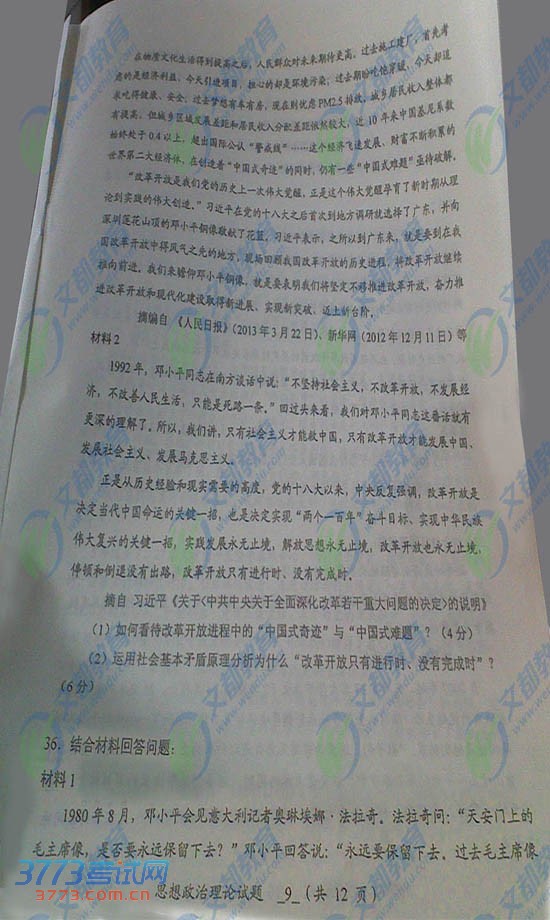 在物质文化生活得到提高之后，人民群众对未来期待更高。过去施工建厂，首先考
虑的是经济利益，今天引进项目，担心的却是环境污染；过去期盼吃饱穿暖，今天却追
求吃得健康、安全；过去梦想有车有房，现在则忧虑PM2.5排放。城乡居民收入整体都
有提高，但城乡区域发展差距和居民收入分配差距依然较大，近10年来中国基尼系数
始终处于0.4以上，超出国际公认“警戒线”……这个经济飞速发展、财富不断积累的
世界第二大经济体，在创造着“中国式奇迹”的同时，仍有一些“中国式难题”亟待破解。
“改革开放是我们党的历史上一次伟大觉醒，正是这个伟大觉醒孕育了新时期从理
论到实践的伟大创造。”习近平在党的十八大之后首次到地方调研就选择了广东，并向
深圳莲花山顶的邓小平铜像敬献了花篮。习近平表示，之所以到广东来，就是要到在我
国改革开放中得风气之先的地方，现场回顾我国改革开放的历史进程，将改革开放继续
推向前进。我们来瞻仰邓小平铜像，就是要表明我们将坚定不移推进改革开放，奋力推
进改革开放和现代化建设取得新进展、实现新突破、迈上新台阶。
摘编自 《人民日报》（2013年3月22日）、新华网（2012年12月11日）等
材料2
1992年，邓小平同志在南方谈话中说：“不坚持社会主义，不改革开放，不发展经
济，不改善人民生活，只能是死路一条。”回过头来看，我们对邓小平同志这番话就有
更深的理解了。所以，我们讲，只有社会主义才能救中国，只有改革开放才能发展中国、
发展社会主义、发展马克思主义。
正是从历史经验和现实需要的高度，党的十八大以来，中央反复强调，改革开放是
决定当代中国命运的关键一招，也是决定实现“两个一百年”奋斗目标、实现中华民族
伟大复兴的关键一招，实践发展永无止境，解放思想永无止境，改革开放也永无止境，
停顿和倒退没有出路，改革开放只有进行时、没有完成时。
摘自 习近平《关于〈中共中央关于全面深化改革若干重大问题的决定〉的说明》
（1）如何看待改革开放进程中的“中国式奇迹”与“中国式难题”？（4分）
（2）运用社会基本矛盾原理分析为什么“改革开放只有进行时、没有完成时”？
（6分）
36. 结合材料回答问题：
材料1
1980年8月，邓小平会见意大利记者奥琳埃娜·法拉奇。法拉奇问：“天安门上的
毛主席像，是否要永远保留下去？”邓小平回答说：“永远要保留下去。过去毛主席像
思想政治理论试题 9（共12页）
3773考试网
www.3773.com.cn
文都教育